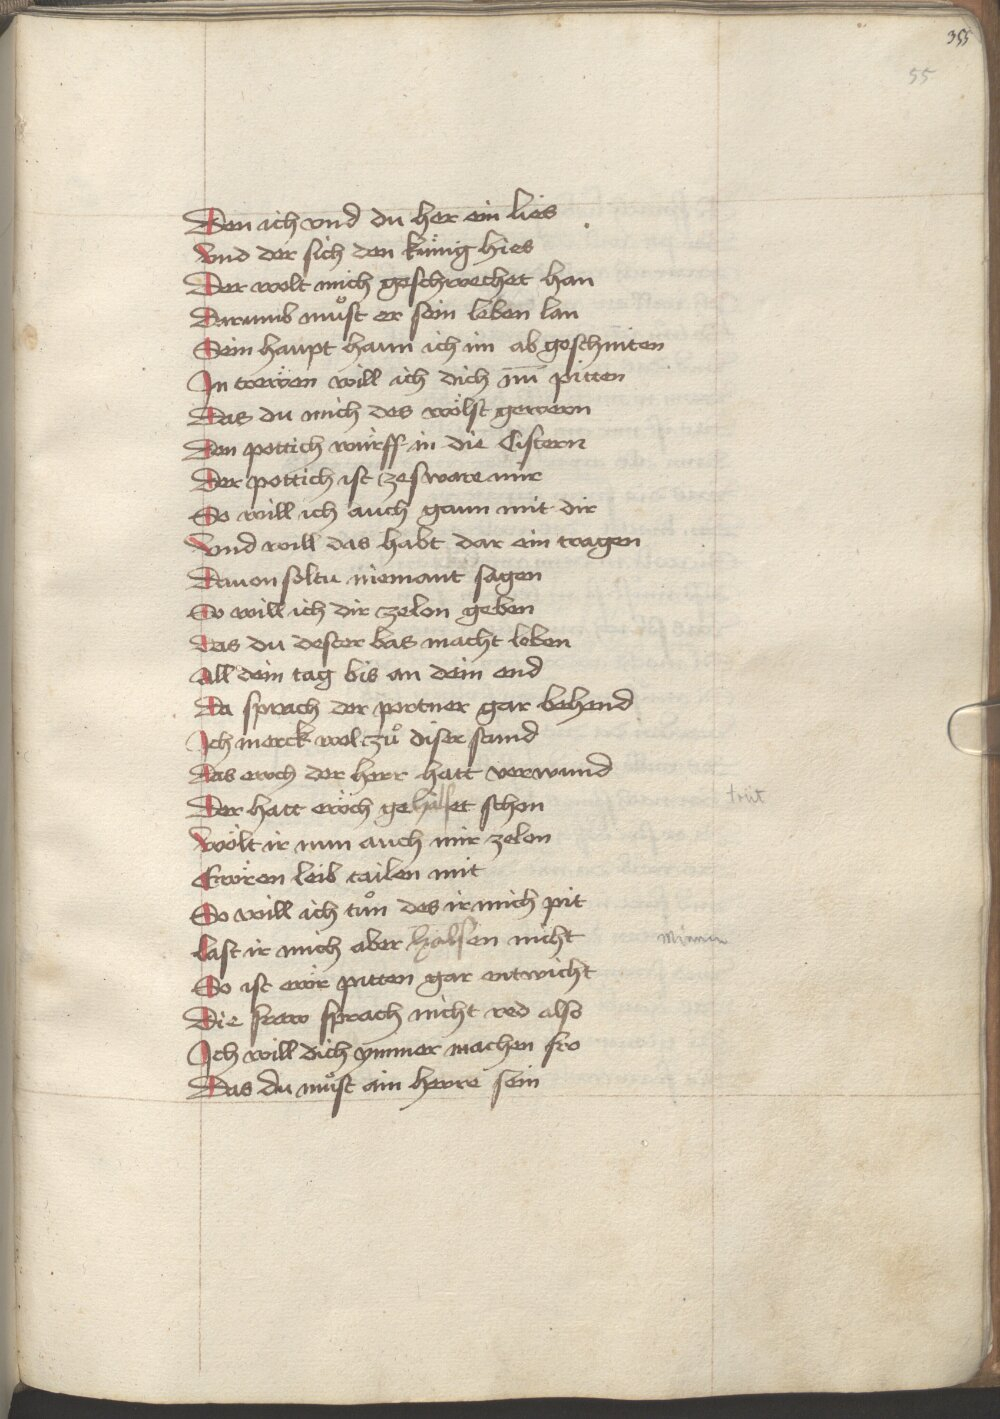 355
55
Den ich vnd du her ein lies
Vnd der sich den kúnig hies
Der wolt mich geschwechet han
Darumb muͦst er sein leben lan
Sein haupt haun ich im ab geschniten
In trewen will ich dich nū pitten
Das du mich des wölst gewern
Den pottich würff in die Cistern
Der pottich ist ze sware mir
So will ich auch gaun mit dir
Vnd will das habt dar ein tragen
Dauon soltu niemant sagen
So will ich dir ze lon geben
Das du dester bas macht leben
All dein tag bis an dein end
Da sprach der portner gar behend
Ich merck wol zuͦ diser stund
Das ewch der herr hatt verwund
Der hatt ewch gehalset schon
trüt
Wölt ir nun auch mir ze lon
Ewren leib tailen mit
So will ich tuͦn des ir mich pit
Last ir mich aber halsen nicht
Minnen
So ist ewr pitten gar entwicht
Die fraw sprach nicht red also
Ich will dich ymmer machen fro
Das du muͦst ain herre sein